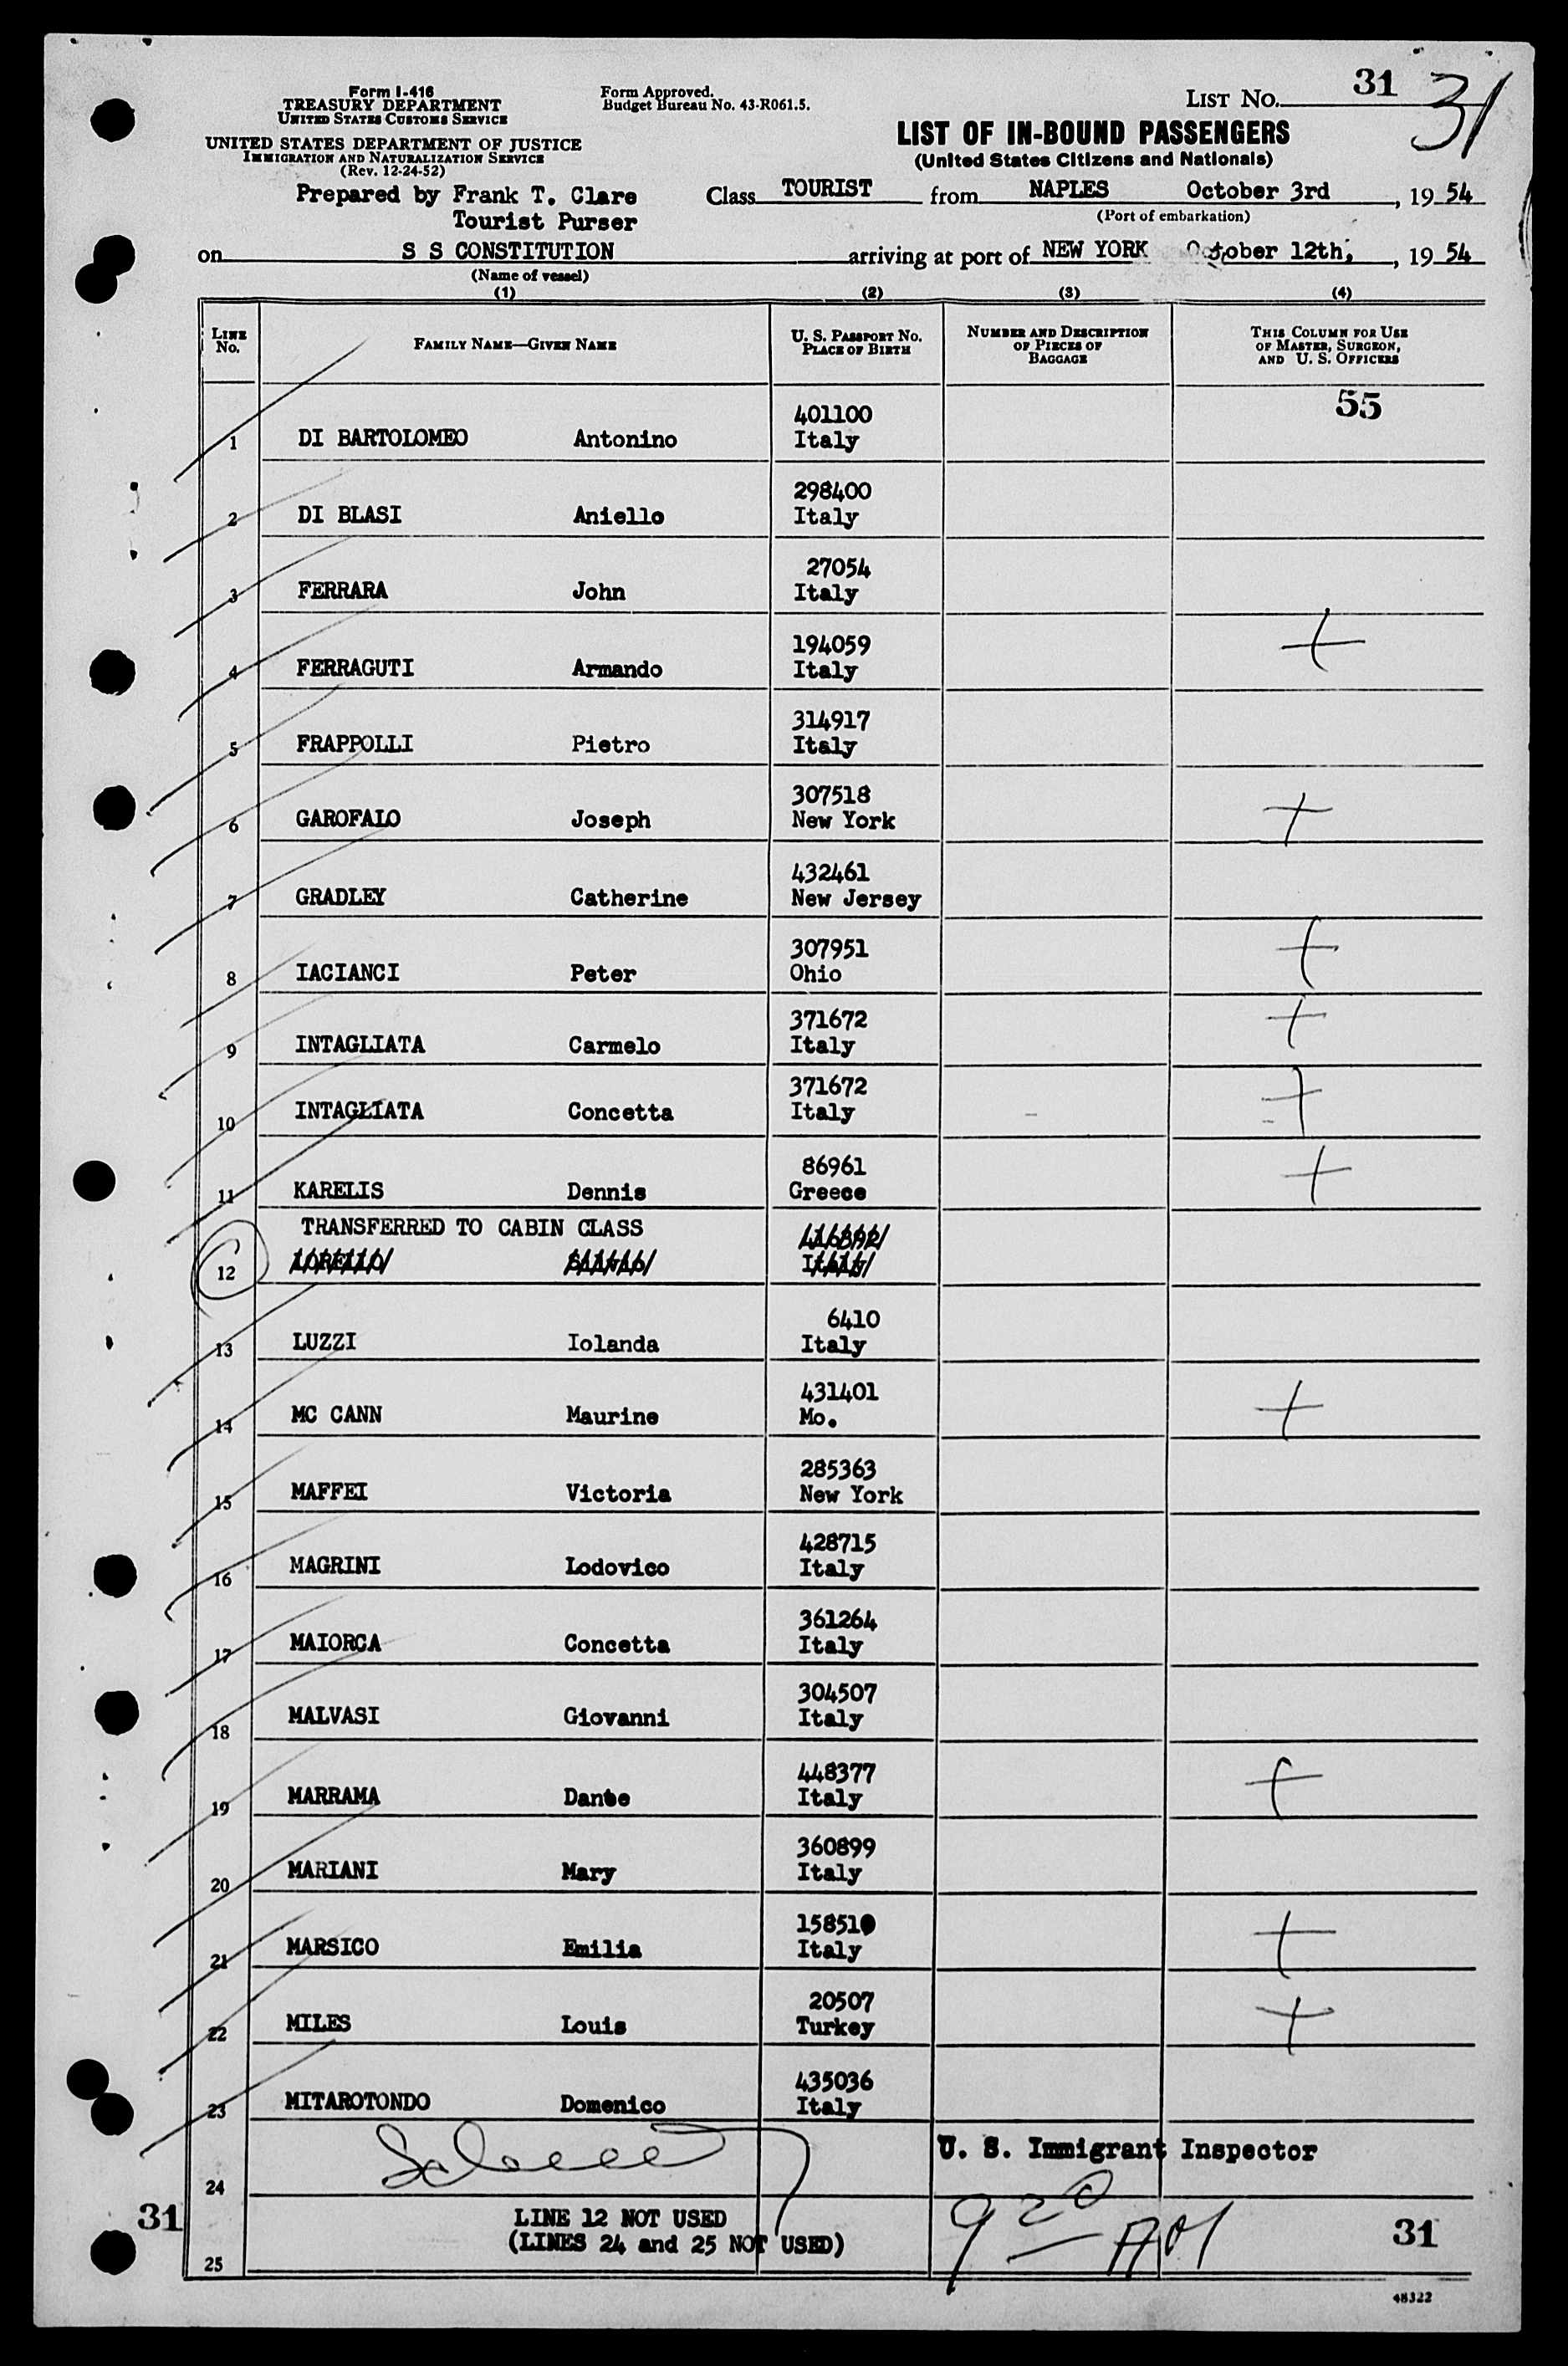 Form I-416
TREASURY DEPARTMENT
UNITED STATES CUSTOMS SERVICE
UNITED STATES DEPARTMENT OF JUSTICE
IMMIGRATION AND NATURALIZATION SERVICE
(Rev. 12-24-52)
Form Approved.
Budget Bureau No. 43-R061.5.
LIST NO. 31 31
LIST OF IN-BOUND PASSENGERS
(United States Citizens and Nationals)
Prepared by Frank T. Clare
Tourist Purser
Class TOURIST from NAPLES October 3rd, 19 54
(Port of embarkation)
on S S CONSTITUTION arriving at port of NEW YORK October 12th, , 19 54
(Name of vessel)
(1) (2) (3) (4)
LINE No. FAMILY NAME—GIVEN NAME U. S. PASSPORT No. PLACE OF BIRTH NUMBER AND DESCRIPTION OF PIECES OF BAGGAGE THIS COLUMN FOR USE OF MASTER, SURGEON, AND U. S. OFFICERS
55
401100
1 DI BARTOLOMEO Antonino Italy
298400
2 DI BLASI Aniello Italy
27054
3 FERRARA John Italy
194059
4 FERRAGUTI Armando Italy
314917
5 FRAPPOLLI Pietro Italy
307518
6 GAROFALO Joseph New York
432461
7 GRADLEY Catherine New Jersey
307951
8 IACIANCI Peter Ohio
371672
9 INTAGLIATA Carmelo Italy
371672
10 INTAGLIATA Concetta Italy
86961
11 KARELIS Dennis Greece
TRANSFERRED TO CABIN CLASS
12 LORELLO Italy
6410
13 LUZZI Iolanda Italy
431401
14 MC CANN Maurine Mo.
285363
15 MAFFEI Victoria New York
428715
16 MAGRINI Lodovico Italy
361264
17 MAIORCA Concetta Italy
304507
18 MALVASI Giovanni Italy
448377
19 MARRAMA Dante Italy
360899
20 MARIANI Mary Italy
158510
21 MARSICO Emilia Italy
20507
22 MILES Louis Turkey
435036
23 MITAROTONDO Domenico Italy
U. S. Immigrant Inspector
24
31 LINE 12 NOT USED 9 20 AM 31
(LINES 24 and 25 NOT USED)
25
48322